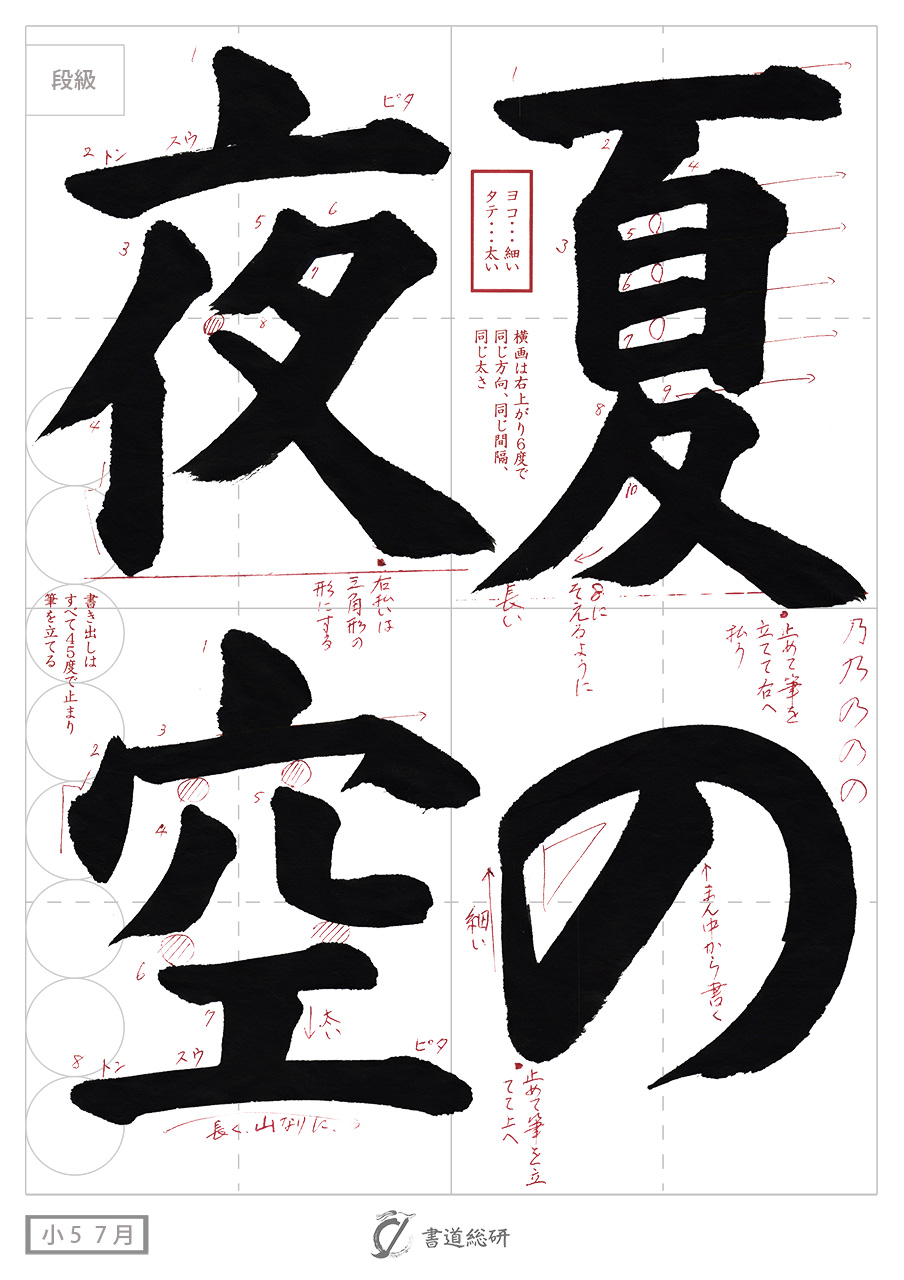 夏の
夜空
段級
ヨコ・・・細い
タテ・・・太い
横画は右上がり6度で
同じ方向、同じ間隔、
同じ太さ
8に
そえるように
長い
止めて筆を
立てて右へ
払う
乃乃のの
まん中から書く
細い
止めて筆を立
てて上へ
トン
スウ
ピタ
右払いは
三角形の
形にする
書き出しは
すべて45度で止まり
筆を立てる
太い
トン
スウ
ピタ
長く、山なりに、
1
2
3
4
5
6
7
8
9
10
1
2
3
4
5
6
7
8
1
2
3
4
5
6
7
8
小5 7月
書道総研